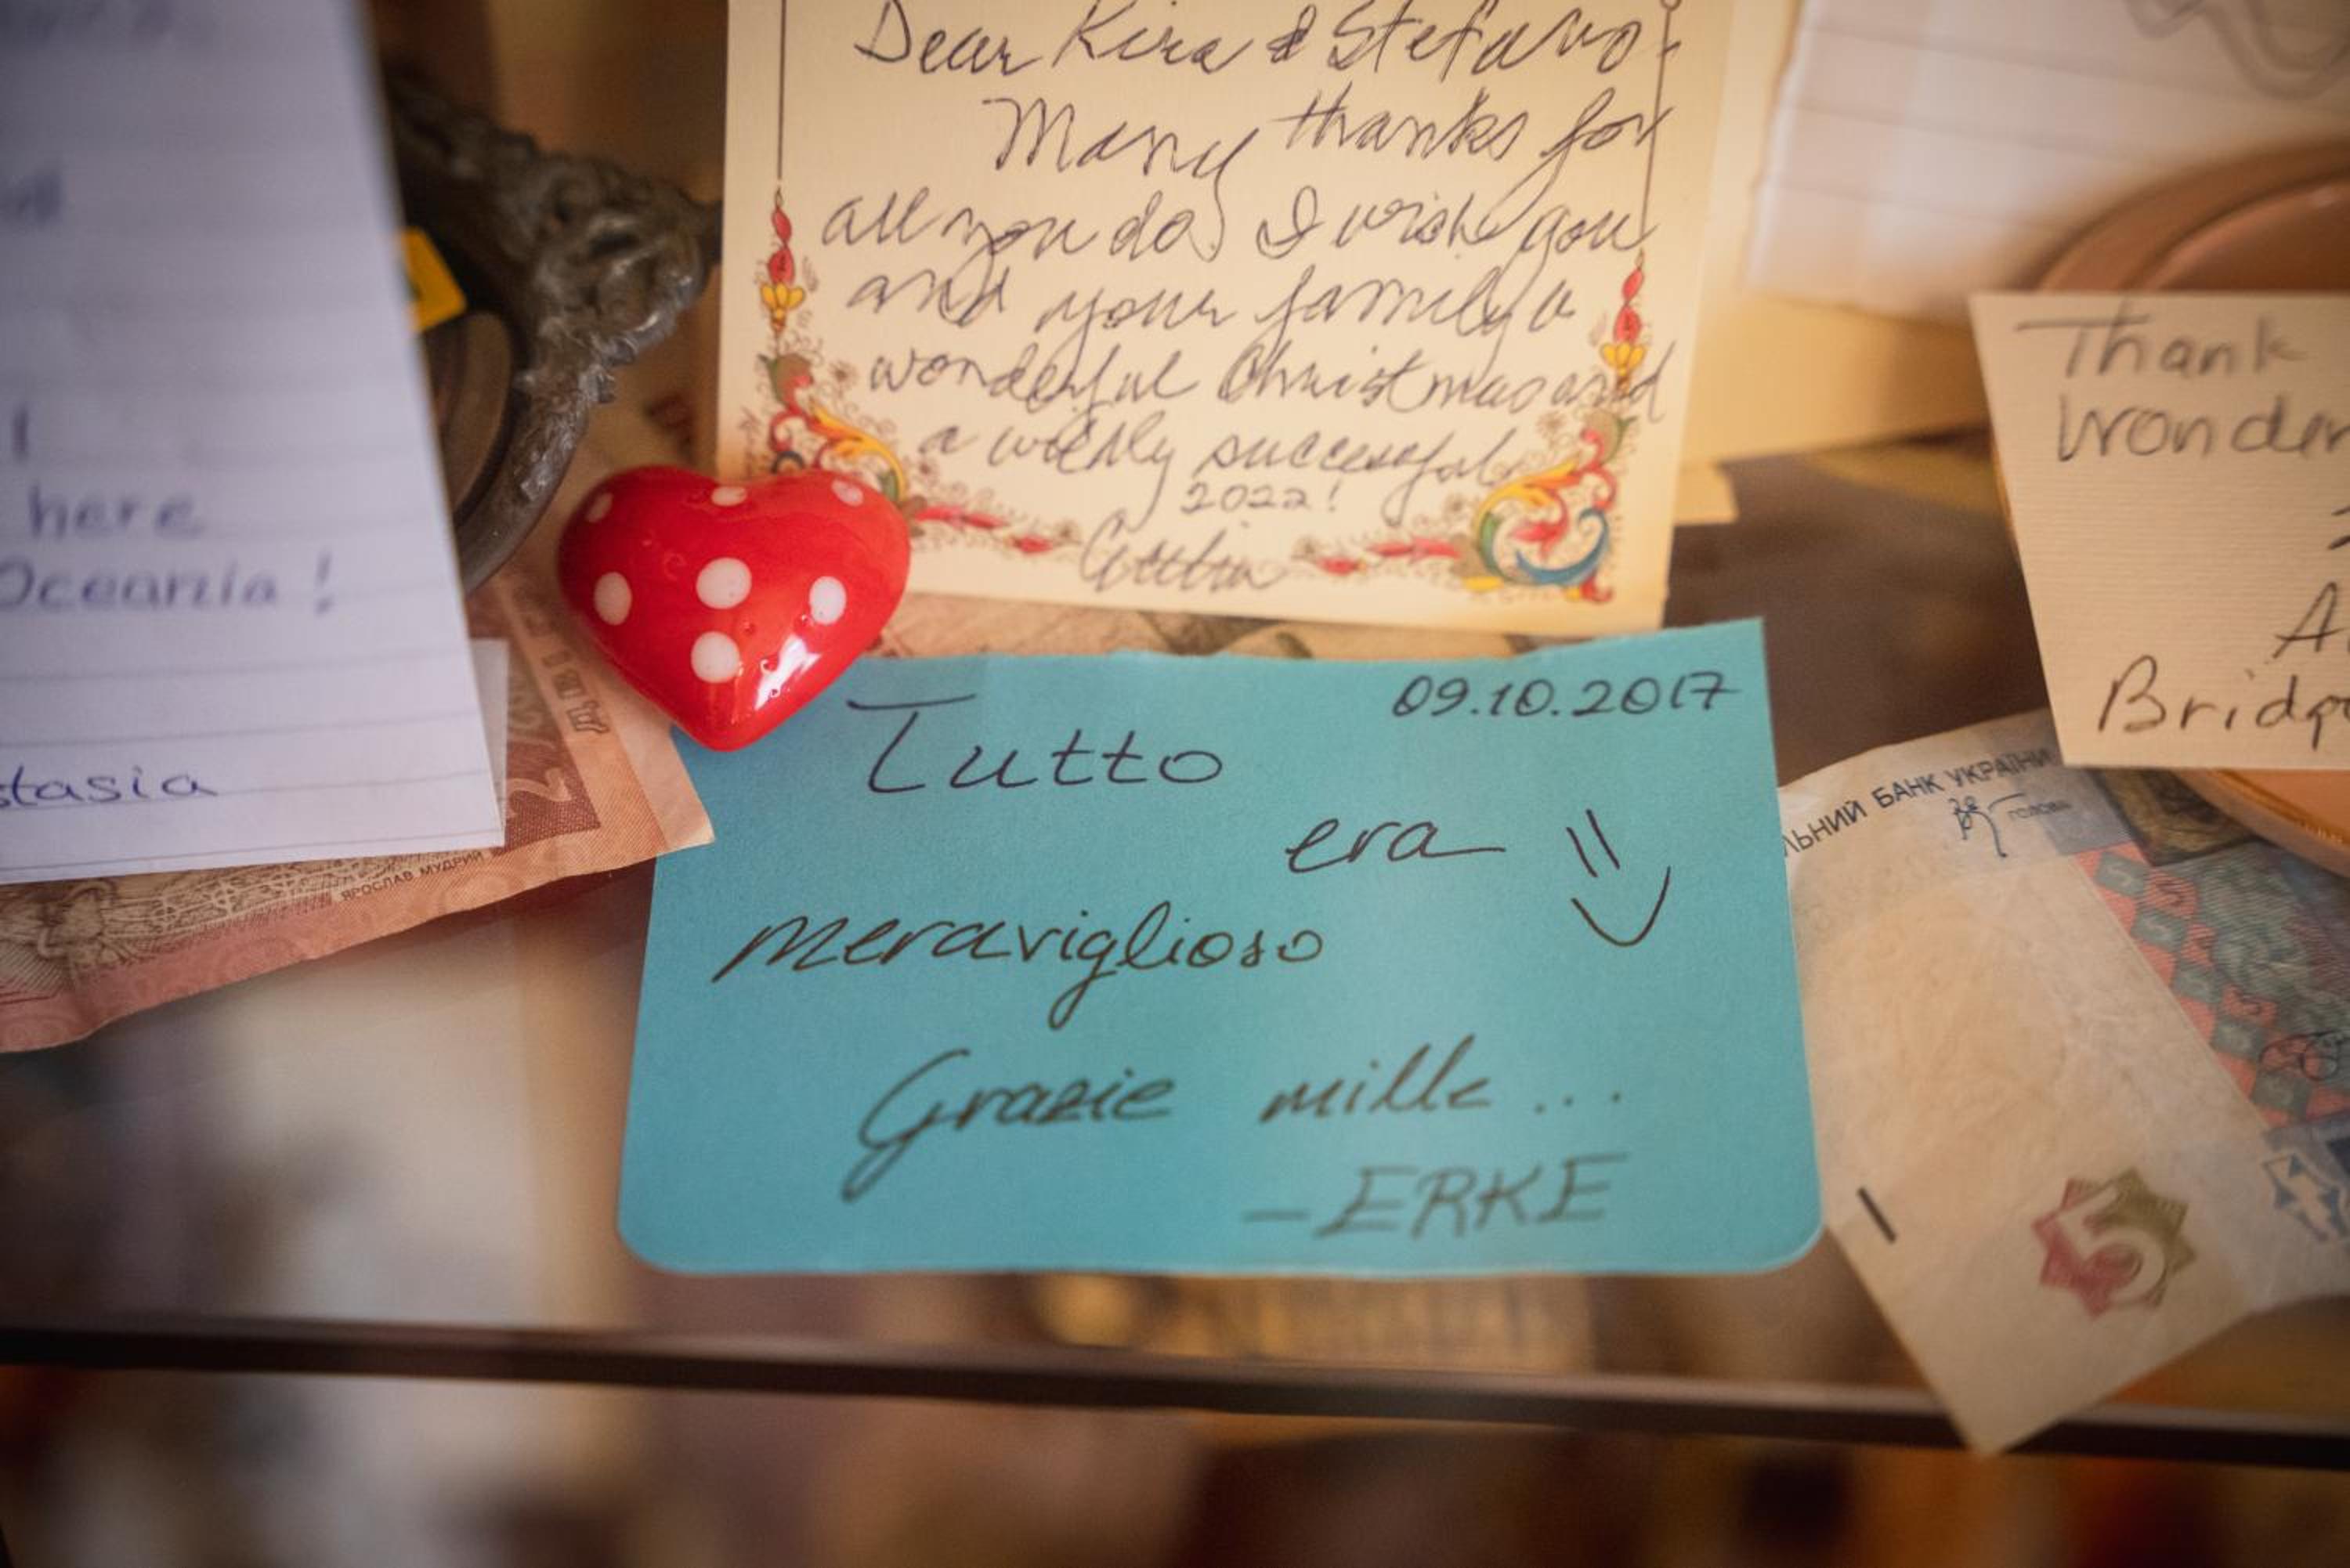 here
Oceania!
stasia
Dear Kira & Stefano-
Many thanks for
all you do. I wish you
and your family a
wonderful Christmas and
a wildly successful
2022!
Thank
Wonder
Bridg
09.10.2017
Tutto
era
meraviglioso
Grazie mille...
-ERKE
ЯРОСЛАВ МУДРИЙ
ЛЬНИЙ БАНК УКРАЇНИ
ГОЛОВА
5